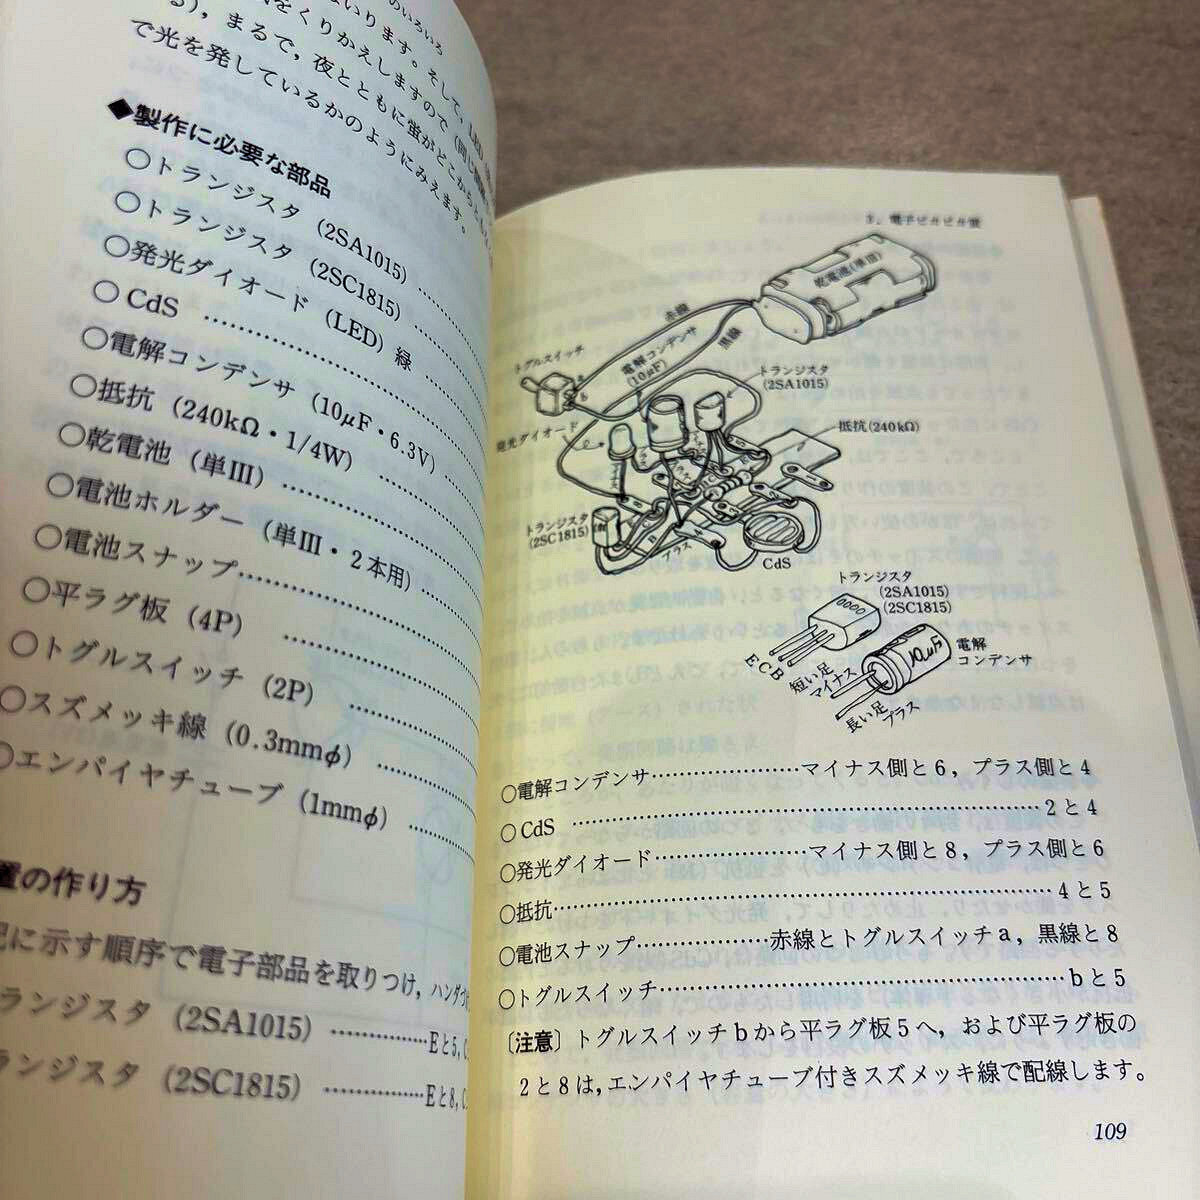 のいろいろ
まいります。そして, LED
をくりかえしますので(同じ
る), まるで, 夜とともに蛍がどこからともなく
で光を発しているかのようにみえます。
◆製作に必要な部品
○トランジスタ (2SA1015) ……
○トランジスタ (2SC1815) ……
○発光ダイオード (LED) 緑 ……
○CdS ……………………
○電解コンデンサ (10μF・6.3V) ……
○抵抗 (240kΩ・1/4W) ……
○乾電池 (単Ⅲ) ……………
○電池ホルダー (単Ⅲ・2本用) ……
○電池スナップ……………………
○平ラグ板 (4P) ……………
○トグルスイッチ (2P) ……………
○スズメッキ線 (0.3mmφ) ……………
○エンパイヤチューブ (1mmφ) ……
置の作り方
記に示す順序で電子部品を取りつけ, ハンダづ
ランジスタ (2SA1015) ……………Eと5, C
ランジスタ (2SC1815) ……………Eと8, C
3. 電子ピカピカ蛍
乾電池(単Ⅲ)
赤線
黒線
トグルスイッチ
a
b
電解コンデンサ
(10μF)
トランジスタ
(2SA1015)
発光ダイオード
抵抗(240kΩ)
トランジスタ
(2SC1815)
プラス
CdS
トランジスタ
(2SA1015)
(2SC1815)
E C B
電解
コンデンサ
10μ
短い足
マイナス
長い足
プラス
○電解コンデンサ…………………マイナス側と6, プラス側と4
○CdS ……………………………………………………2と4
○発光ダイオード…………………マイナス側と8, プラス側と6
○抵抗……………………………………………………4と5
○電池スナップ………………赤線とトグルスイッチa, 黒線と8
○トグルスイッチ……………………………………………bと5
〔注意〕トグルスイッチbから平ラグ板5へ, および平ラグ板の
2と8は, エンパイヤチューブ付きスズメッキ線で配線します。
109